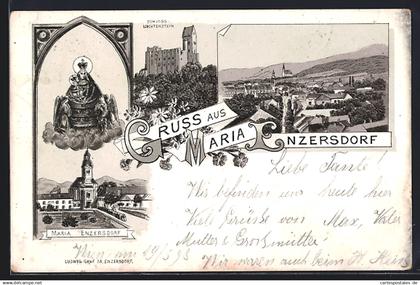 SCHLOSS
LIECHTENSTEIN
GRUSS AUS
MARIA ENZERSDORF
MARIA ENZERSDORF
LUDWIG GRAF, M. ENZERSDORF.
Liebe Tante!
Wir befinden uns heute hier
Viele Grüsse von Max, Vater
Mutter & Grossmutter!
Wien am 29/5 98
Wir waren auch beim H.